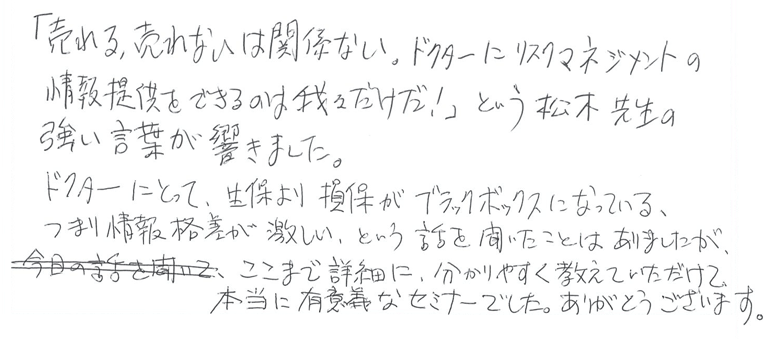 「売れる、売れないは関係ない。ドクターにリスクマネジメントの
情報提供をできるのは我々だけだ!」という松木先生の
強い言葉が響きました。
ドクターにとって、生保より損保がブラックボックスになっている、
つまり情報格差が激しい、という話を聞いたことはありましたが、
今日の話を聞いて、ここまで詳細に、分かりやすく教えていただけて、
本当に有意義なセミナーでした。ありがとうございます。